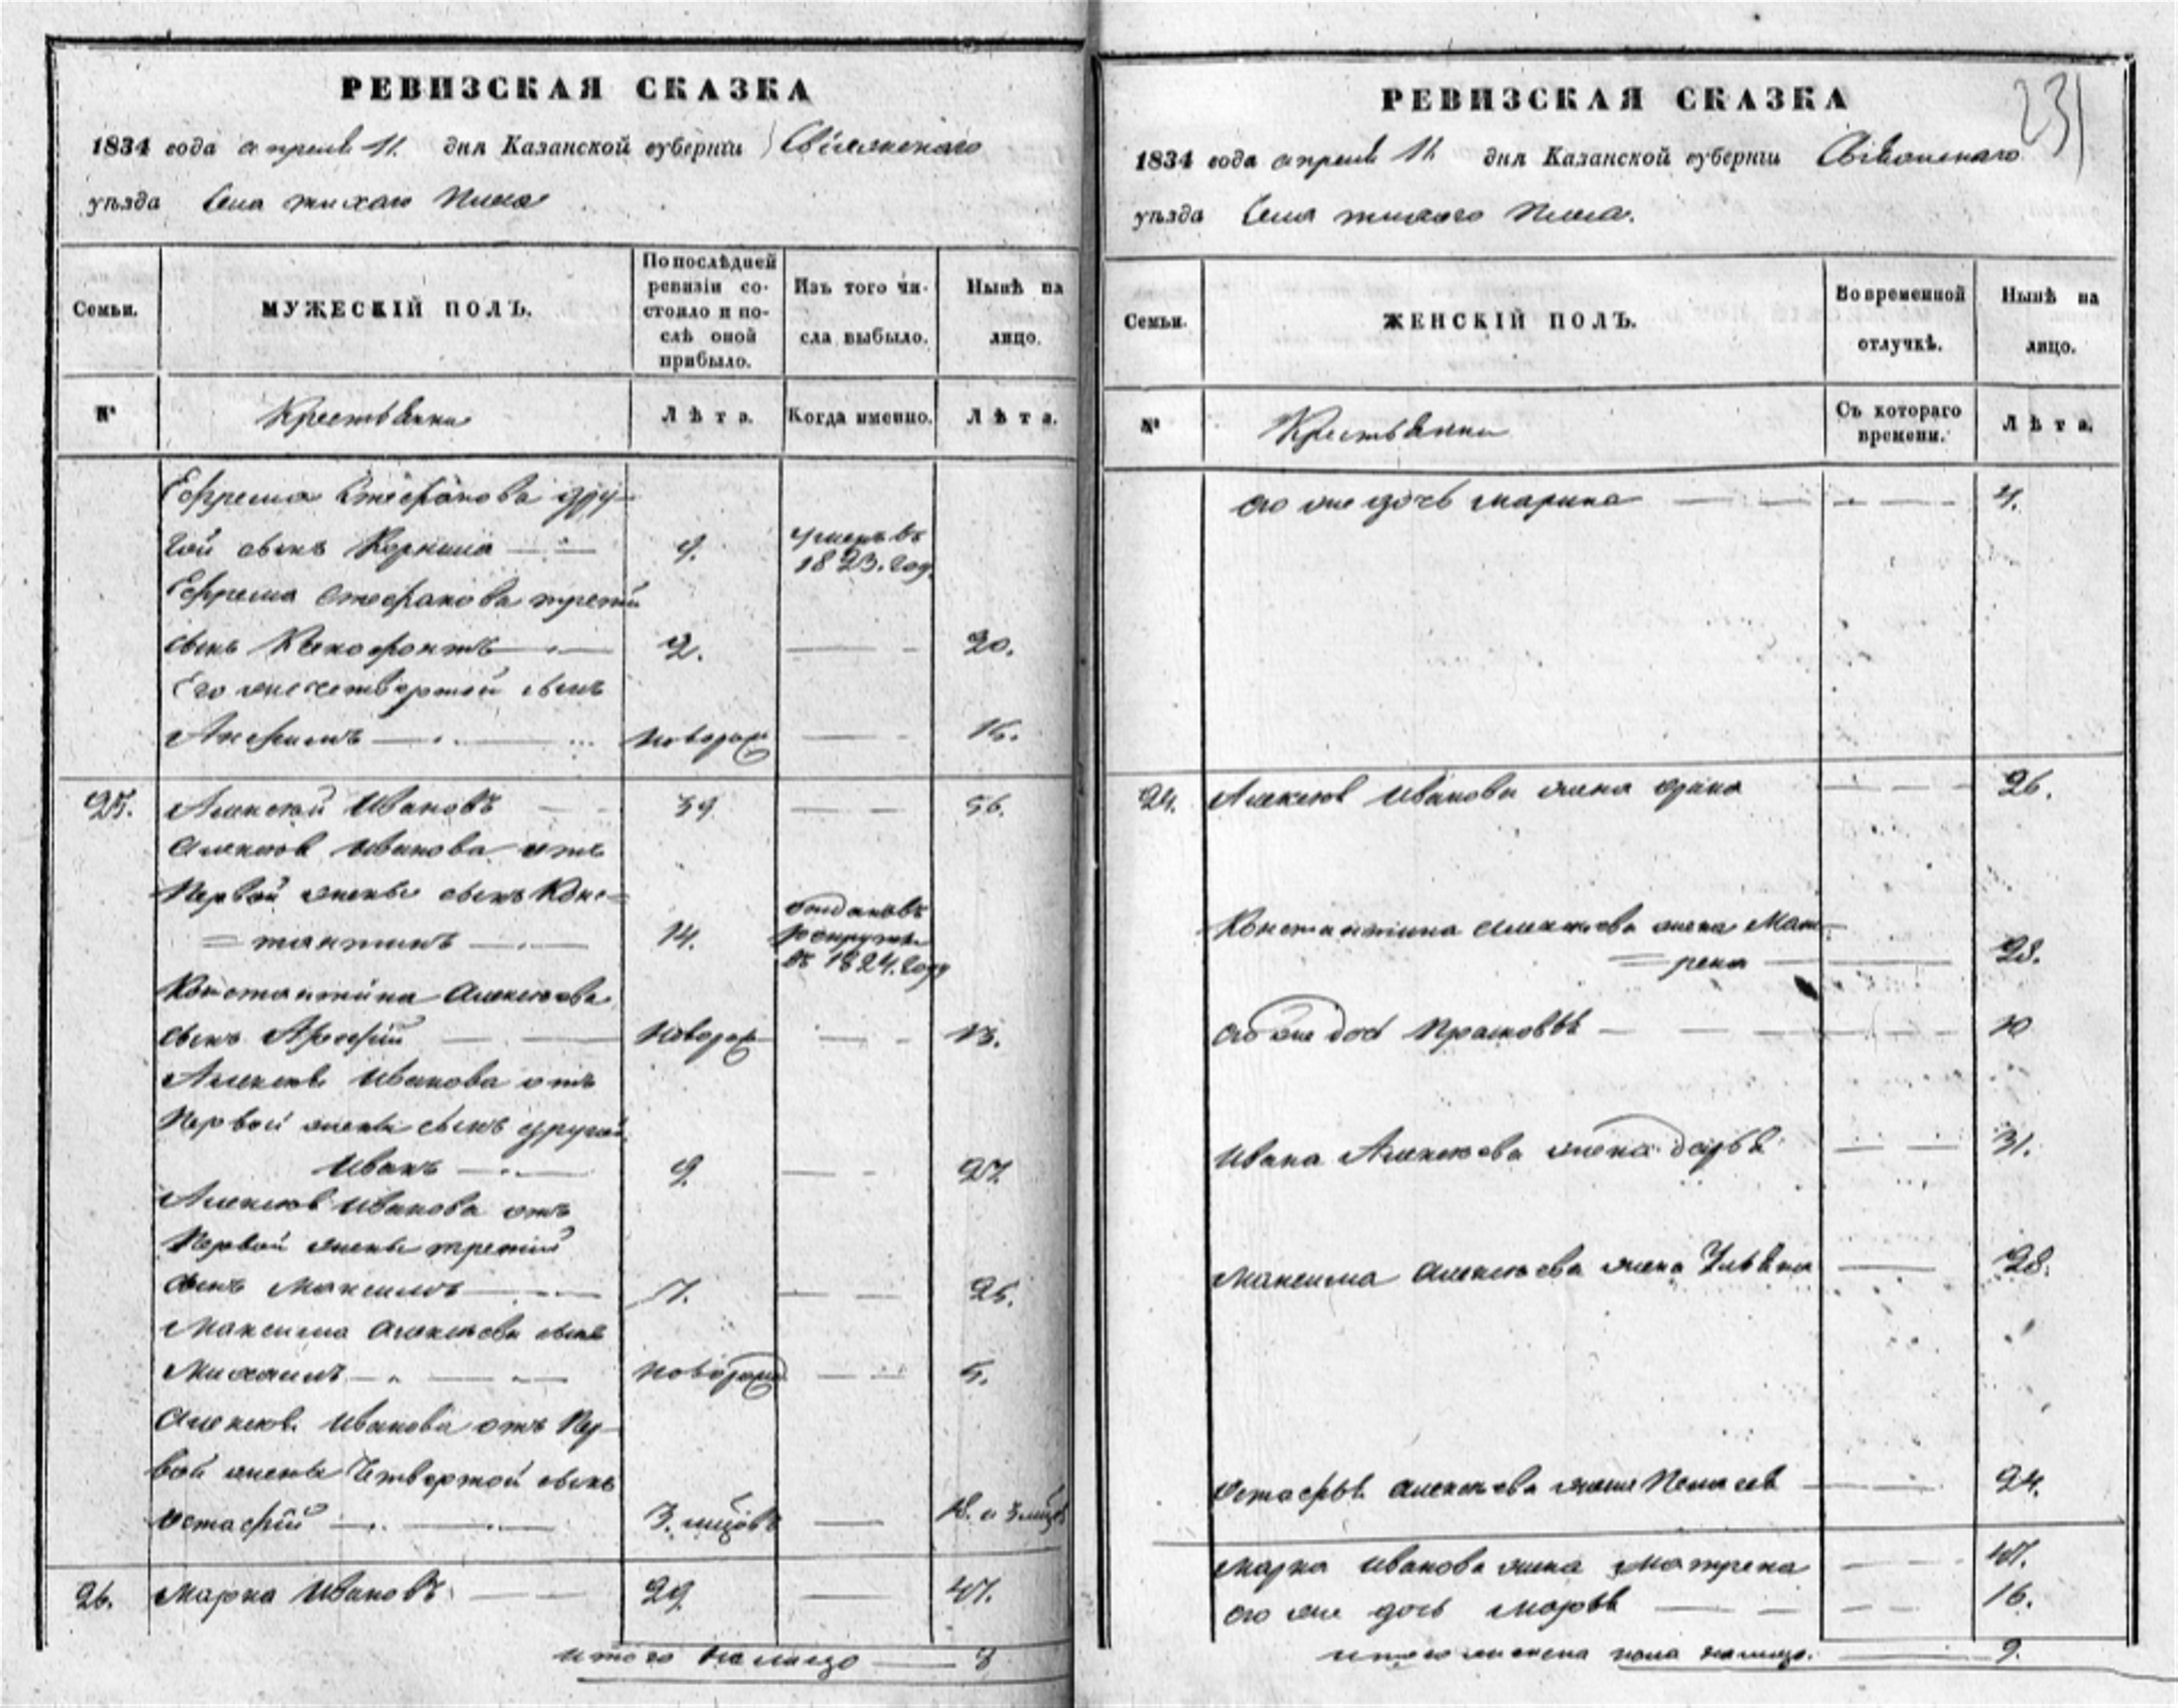 РЕВИЗСКАЯ СКАЗКА
1834 года апреля 11 дня Казанской губерніи Свіяжскаго
уѣзда Села тихаго Плеса
Семьи.
МУЖЕСКІЙ ПОЛЪ.
По послѣдней ревизіи со-
стояло и по-
слѣ оной
прибыло.
Изъ того чи-
сла выбыло.
Нынѣ на
лицо.
№
Крестьянъ
Лѣта.
Когда именно.
Лѣта.
Ефрема Стефанова дру-
гой сынъ Корнила 4. умеръ въ
1823. год
Ефрема Стефанова третій
сынъ Ксенофонтъ 2. 20.
Его же четвертой сынъ
Анфимъ новорож 15.
25. Алексѣй Ивановъ 39 56.
Алексѣя Иванова отъ
Первой жены сынъ Конс=
=тантинъ 14. отданъ въ
рекруты
въ 1824. году
Константина Алексѣева
сынъ новорож 13.
Алексѣя Иванова отъ
Первой жены сынъ другой
Иванъ 9. 27
Алексѣя Иванова отъ
Первой жены третій
сынъ Максимъ 7. 25.
Максима Алексѣева сынъ
Михаилъ новорож 5.
Алексѣя Иванова отъ Пер-
вой жены Четвертой сынъ
Остафій 3. мцовъ 18. и 3 мцовъ
26. Марка Ивановъ 29 47.
итого на лицо 8
РЕВИЗСКАЯ СКАЗКА
231
1834 года апреля 11 дня Казанской губерніи Свіяжскаго
уѣзда Села тихаго Плеса.
Семьи.
ЖЕНСКІЙ ПОЛЪ.
Во временной
отлучкѣ.
Нынѣ на
лицо.
№
Крестьянки
Съ котораго
времени.
Лѣта.
его же дочь Марина 4.
Алексѣя Иванова жена 26.
Константина Алексѣева жена Мат-
=рена 28.
его же доч Прасковья 10
Ивана Алексѣева жена дарья 31.
Максима Алексѣева жена Ульяна 28.
Остафья Алексѣева жена 24.
Марка Иванова жена Матрена 47.
его же дочь Марья 16.
итого женска пола на лицо. 9.